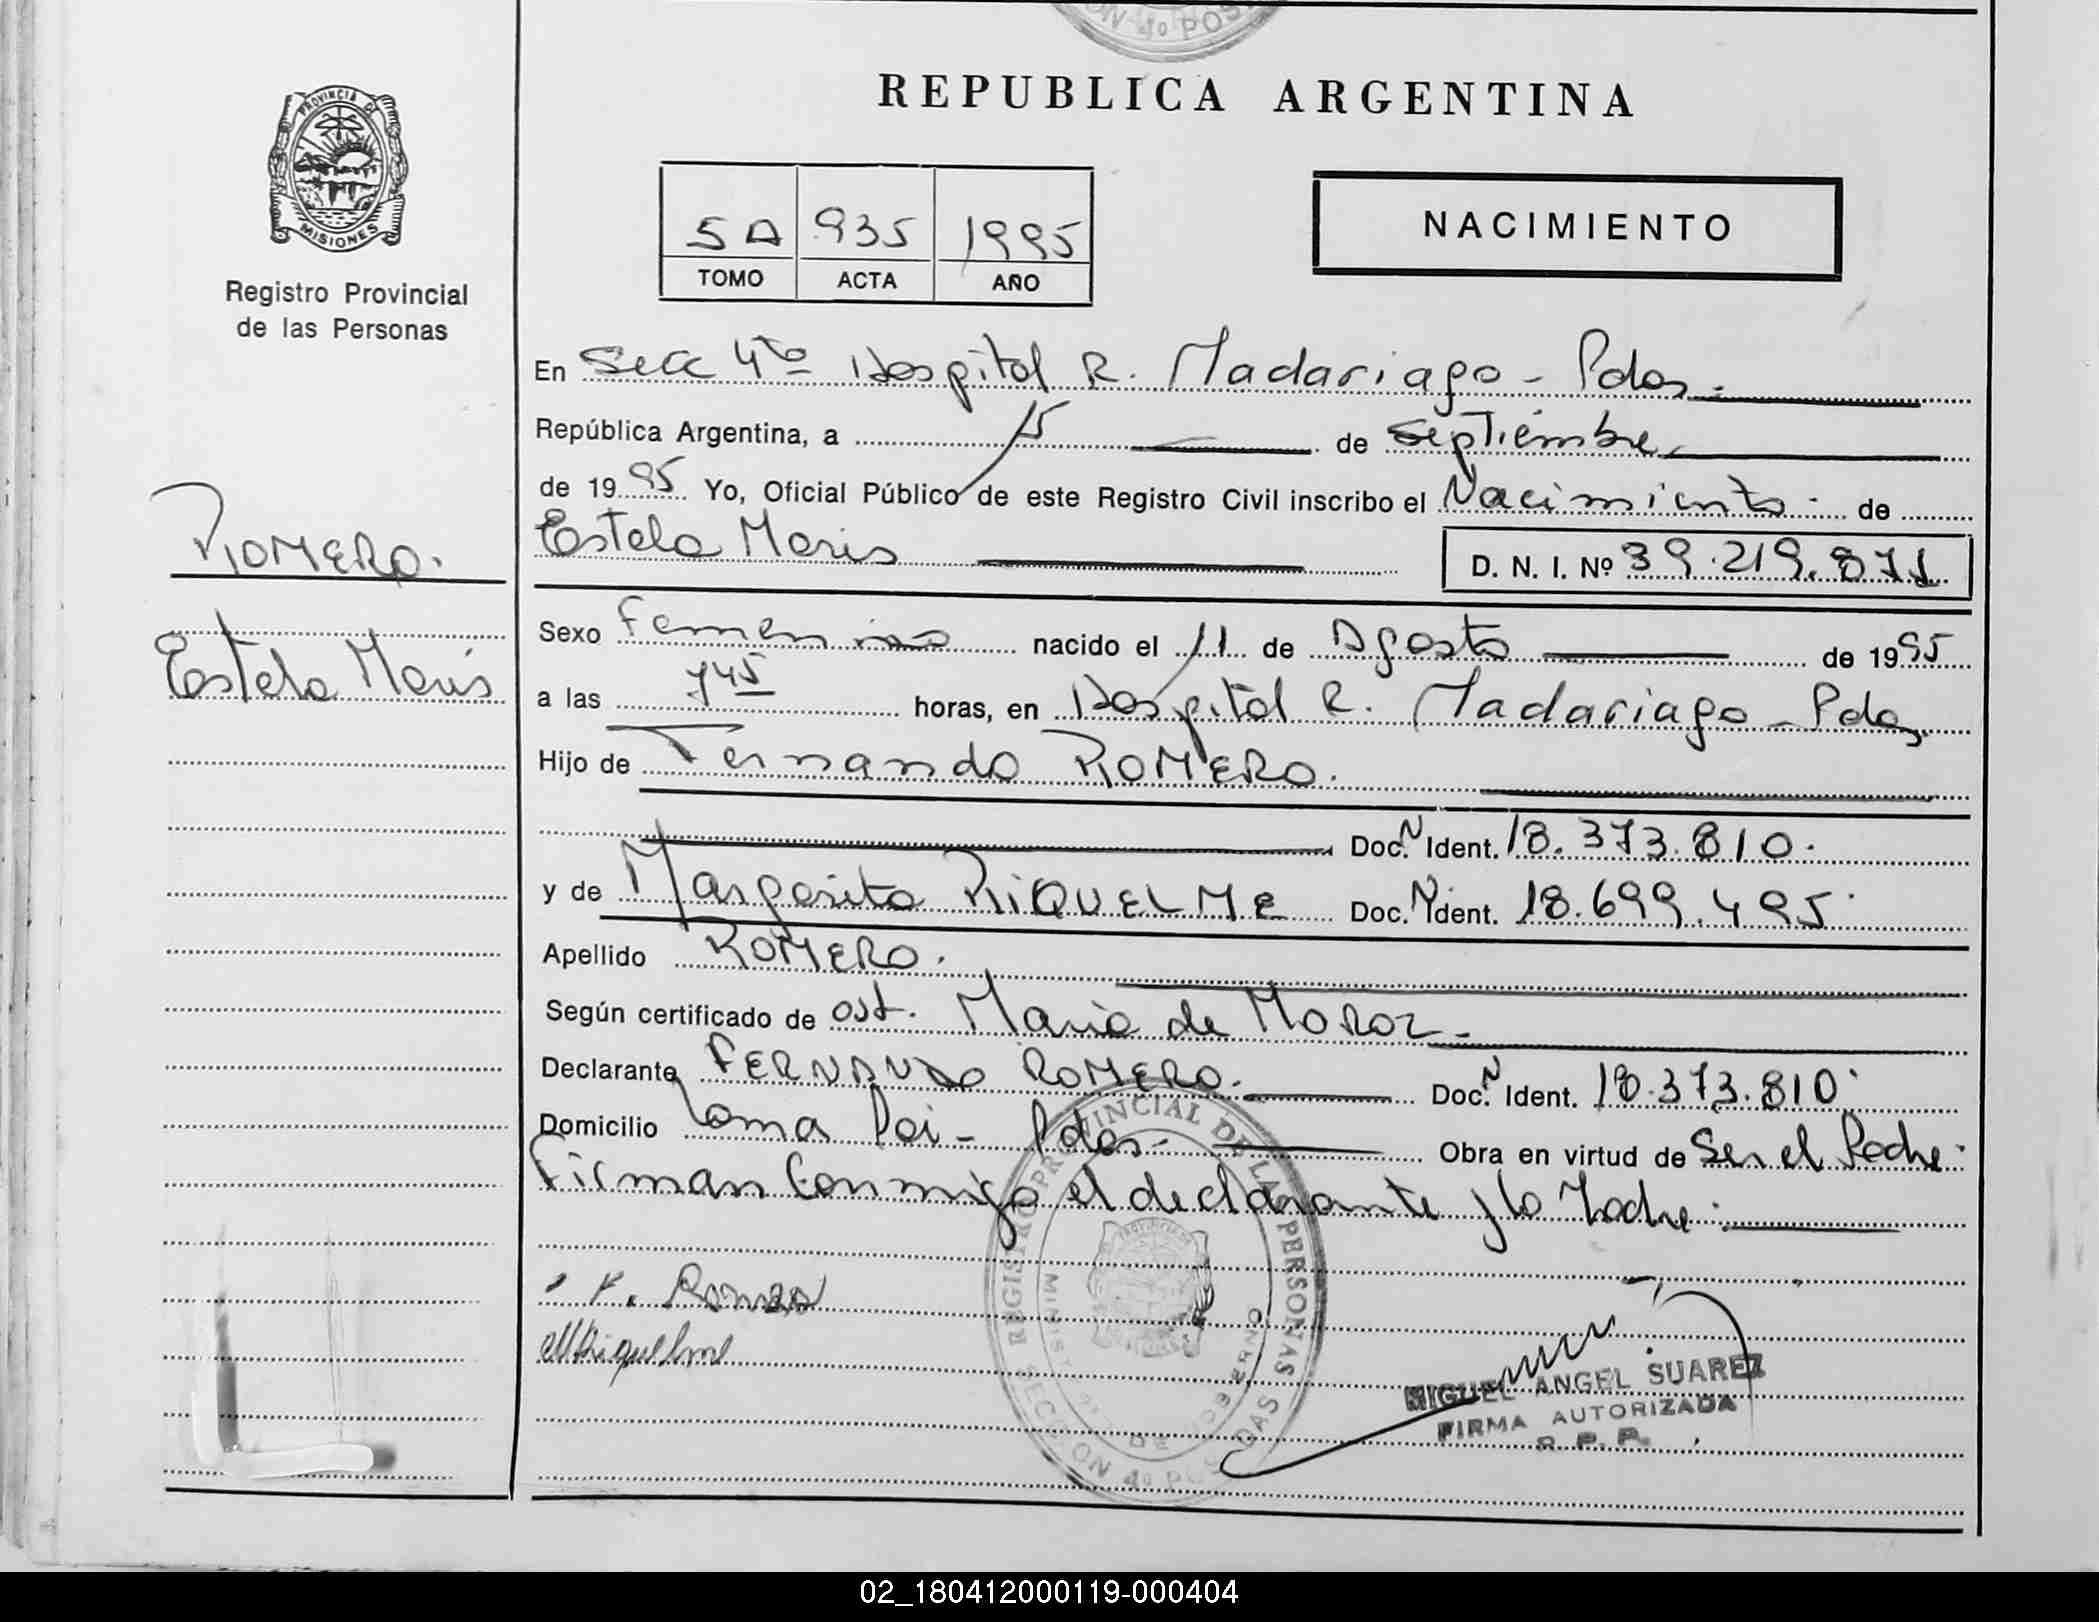 ON 4º POS
REPUBLICA ARGENTINA
PROVINCIA DE
MISIONES
Registro Provincial
de las Personas
5A 935 1995
TOMO ACTA AÑO
NACIMIENTO
En Secc 4ta Hospital R. Madariaga - Pdas.
República Argentina, a 15 de Septiembre
de 1995 Yo, Oficial Público de este Registro Civil inscribo el Nacimiento de
Estela Maris
D. N. I. Nº 39.219.871
ROMERO.
Estela Maris
Sexo femenino nacido el 11 de Agosto de 1995
a las 745 horas, en Hospital R. Madariaga - Pdas.
Hijo de Fernando ROMERO.
Doc. N Ident. 18.373.810.
y de Margarita RIQUELME Doc. N Ident. 18.699.495.
Apellido ROMERO.
Según certificado de ost. Maria de Moroz -
Declarante FERNANDO ROMERO. Doc. N Ident. 18.373.810.
Domicilio Loma Poi - Pdas. Obra en virtud de Ser el Padre.
Firman Conmigo el declarante y la Madre.
F. Romero
MRiquelme
REGISTRO PROVINCIAL DE LAS PERSONAS
SECCION 4º POSADAS
MINIST DE GOBIERNO
MIGUEL ANGEL SUAREZ
FIRMA AUTORIZADA
R. P. P.
02_180412000119-000404